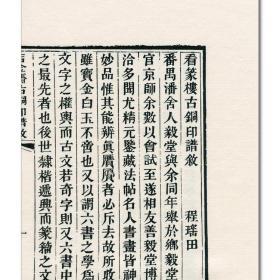 看篆樓古銅印譜敘
程瑤田
番禺潘舍人毅堂與余同年舉於鄉毅堂
官京師余數以會試至遂相友善毅堂博
洽多聞尤精元鑒藏法帖名人書畫皆神
妙品惟其能辨眞贗㞐者必斥去故所收
雖寶金白玉不啻也又以謂六書之學為
文字之權輿而古文若奇字則又六書中
之最先者也後世隸楷遞興而篆籀之文
看篆樓古銅印譜敘
一